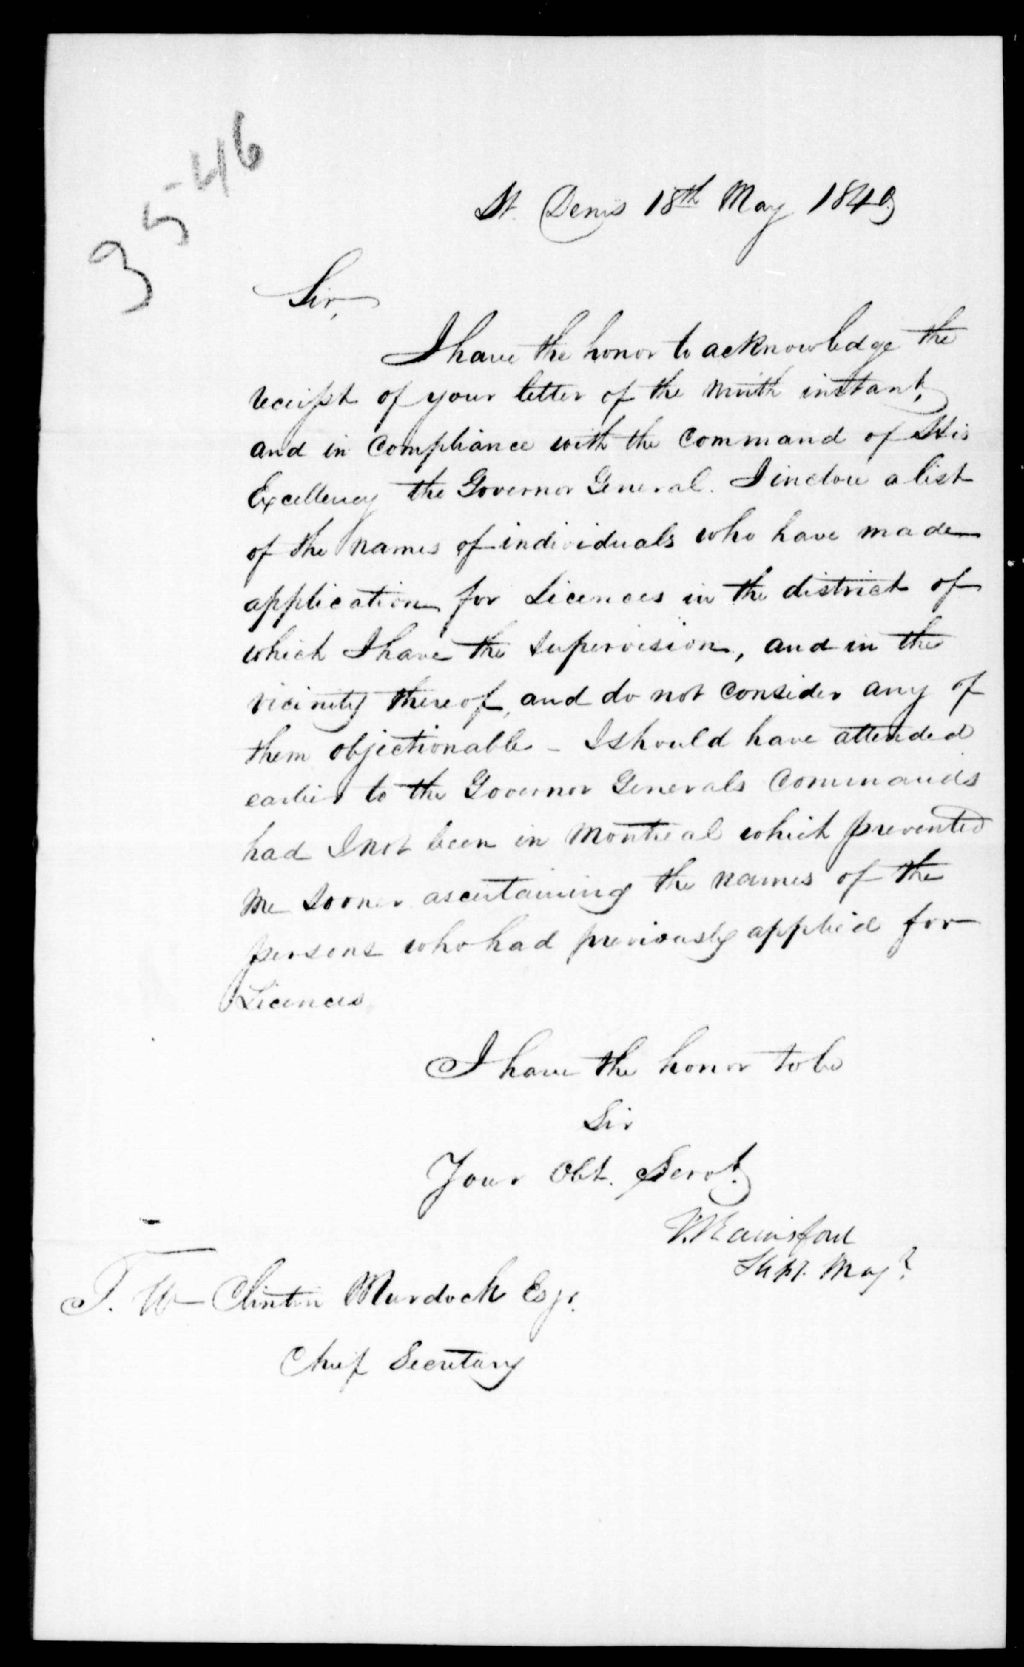 3546
St. Denis 18th May 1840
Sir,
I have the honor to acknowledge the
receipt of your letter of the ninth instant,
and in compliance with the command of His
Excellency the Governor General. I inclose a list
of the names of individuals who have made
application for Licences in the district of
which I have the supervision, and in the
vicinity thereof, and do not consider any of
them objectionable - I should have attended
earlier to the Governor Generals Commands
had I not been in Montreal which prevented
me sooner ascertaining the names of the
persons who had previously applied for
Licences.
I have the honor to be
Sir
Your Obt. Servt.
Rainsford
Stip. Mag.
T. W Clinton Murdoch Esqr.
Chief Secretary